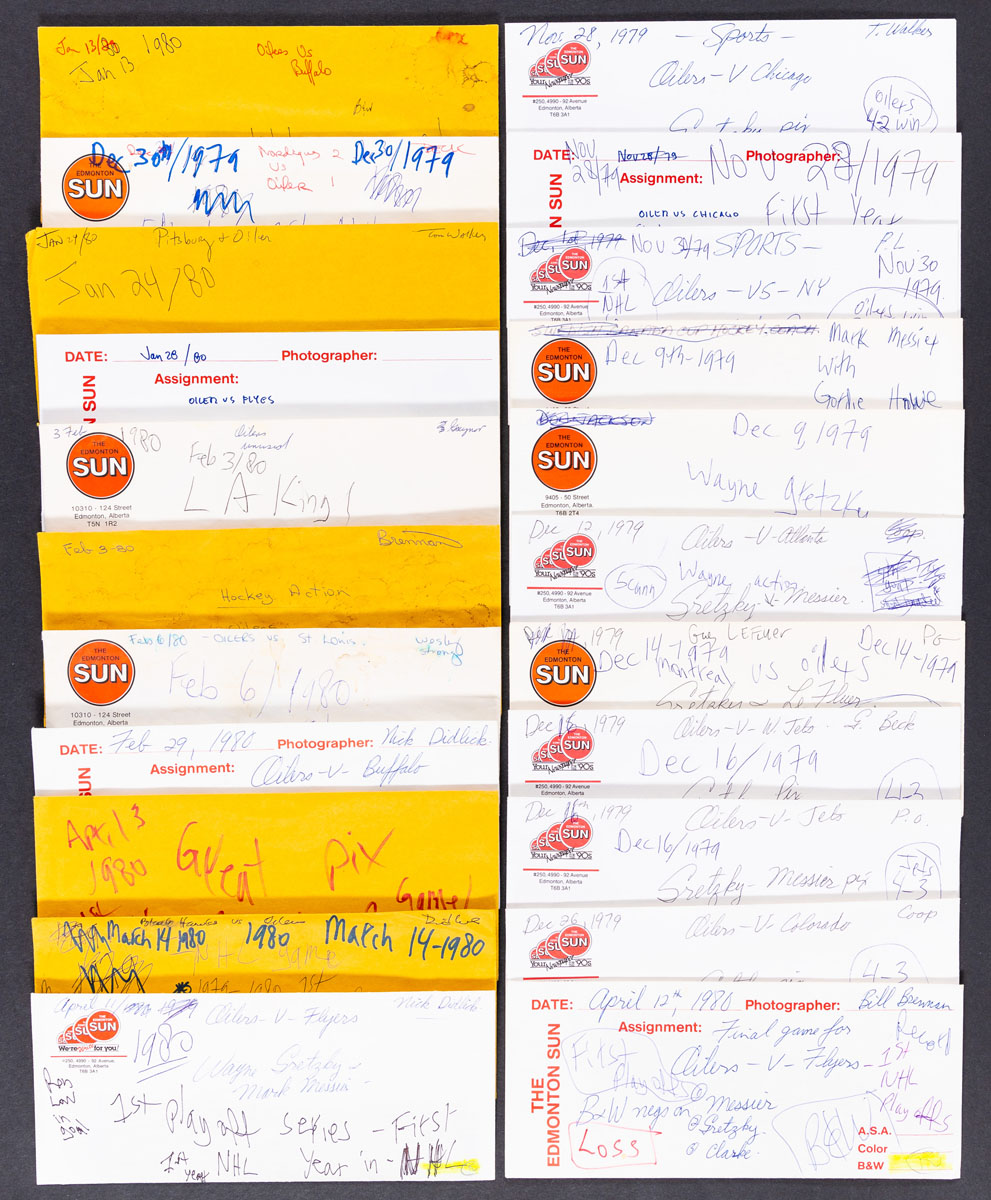 Jan 13/80 1980 Oilers Vs
Jan 13 Buffalo
B&W
Dec 30th/1979 Nordiques 2 Dec 30/1979
THE EDMONTON SUN
VS
Oiler 1
JAN 24/80 Pitsburg & Oiler Tom Walker
Jan 24/80
DATE: Jan 28/80 Photographer:
Assignment:
OILER VS FLYES
N SUN
3 Feb 1980 Oilers
unused
Feb 3/80
THE EDMONTON SUN
L A Kings
10310 - 124 Street
Edmonton, Alberta
T5N 1R2
Feb 3-80 Brennan
Hockey Action
Feb 6/80 - OILERS vs. St Louis. Wesley
Strong
THE EDMONTON SUN
Feb 6/1980
10310 - 124 Street
Edmonton, Alberta
DATE: Feb 29, 1980 Photographer: Nick Didlick
Assignment: Oilers-V-Buffalo
SUN
April 3
1980 Great Pix
1st
March 14 1980 1980 March 14-1980
NHL game
1979-1980 1st
April 11 1979 Oilers-V-Flyers Nick Didlick
SUN
We're for you!
#250, 4990 - 92 Avenue
Edmonton, Alberta
T6B 3A1
1980
Wayne Gretzky &
Mark Messier
1st Play off series - First
1st year NHL Year in - NHL
Nov. 28, 1979 - Sports - T. Walker
SUN
Oilers-V Chicago
#250, 4990 - 92 Avenue
Edmonton, Alberta
T6B 3A1
Oilers
4-2 win
Gretzky pix
DATE: Nov 28/79 Nov 28/79 Photographer:
Assignment: Nov 28/1979
OILER VS CHICAGO First Year
N SUN
Dec. 1st, 1979 Nov 30/79 SPORTS - P.L
Nov 30
1979
SUN
1st
NHL
Oilers-VS-NY
Oilers win
#250, 4990 - 92 Avenue
Edmonton, Alberta
T6B 3A1
THE EDMONTON SUN
Dec 9th-1979 Mark Messier
With
Gordie Howe
DON JACKSON
Dec 9, 1979
THE EDMONTON SUN
Wayne Gretzky
9405 - 50 Street
Edmonton, Alberta.
T6B 2T4
Dec 12, 1979 Oilers-V-Atlanta
SUN
Scann
Wayne action
Gretzky-V-Messier
#250, 4990 - 92 Avenue
Edmonton, Alberta
T6B 3A1
1979 Guy LEFluer Dec 14-1979
THE EDMONTON SUN
Dec 14-1979
Montreal VS Oilers
Gretzky & LeFluer
Dec 16, 1979 Oilers-V-W. Jets - G. Beck
SUN
Dec 16/1979
#250, 4990 - 92 Avenue
Edmonton, Alberta
4-3
Dec 16th, 1979 Oilers-V-Jets P.o.
SUN
Dec 16/1979
Gretzky - Messier pix
Jets
4-3
#250, 4990 - 92 Avenue
Edmonton, Alberta
T6B 3A1
Dec 26, 1979 Oilers-V-Colorado Coop
SUN
4-3
#250, 4990 - 92 Avenue
Edmonton, Alberta
T6B 3A1
DATE: April 12th, 1980 Photographer: Bill Brennan
Assignment: Final game for
Oilers-V-Flyers-
First
Playoffs
Record
1st
NHL
Play offs
B&W negs on Messier
@ Gretzky.
@ Clarke.
LOSS
B&W
THE EDMONTON SUN
A.S.A.
Color
B&W